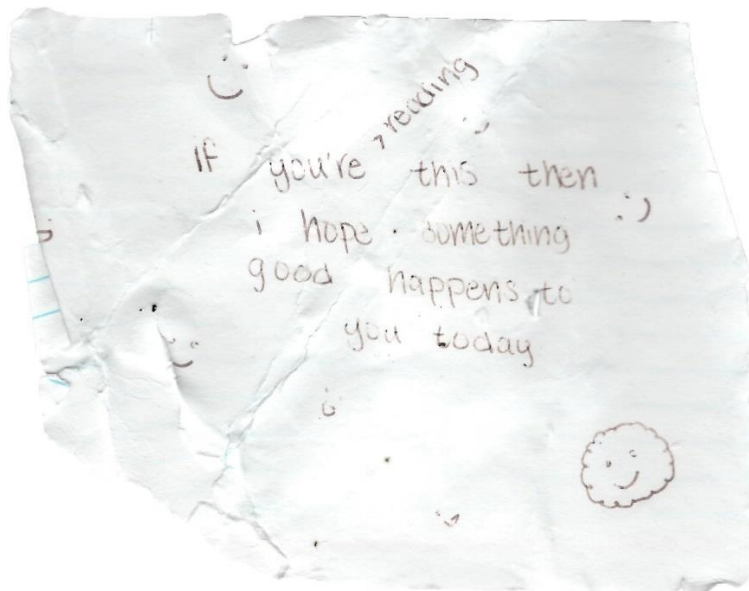 If you're reading this then
i hope something :)
good happens to
you today